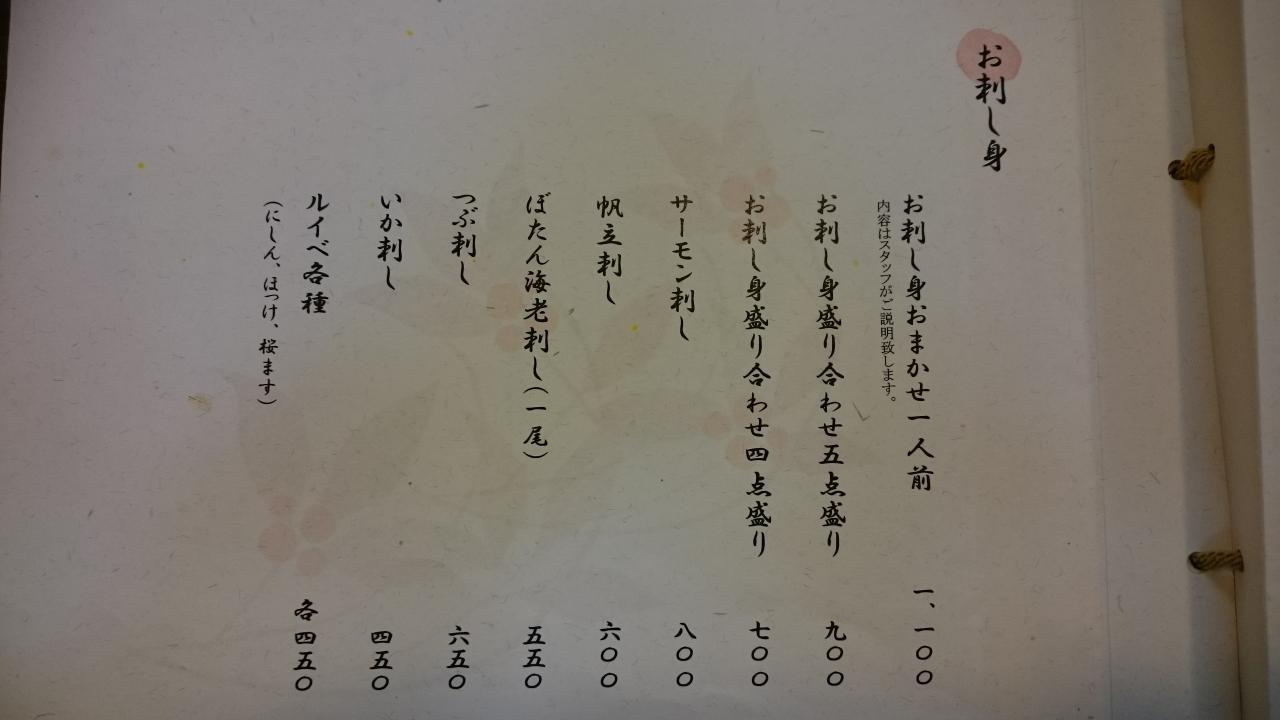 お刺し身
お刺し身おまかせ一人前 一、一〇〇
内容はスタッフがご説明致します。
お刺し身盛り合わせ五点盛り 九〇〇
お刺し身盛り合わせ四点盛り 七〇〇
サーモン刺し 八〇〇
帆立刺し 六〇〇
ぼたん海老刺し(一尾) 五五〇
つぶ刺し 六五〇
いか刺し 四五〇
ルイベ各種 各四五〇
(にしん、ほっけ、桜ます)